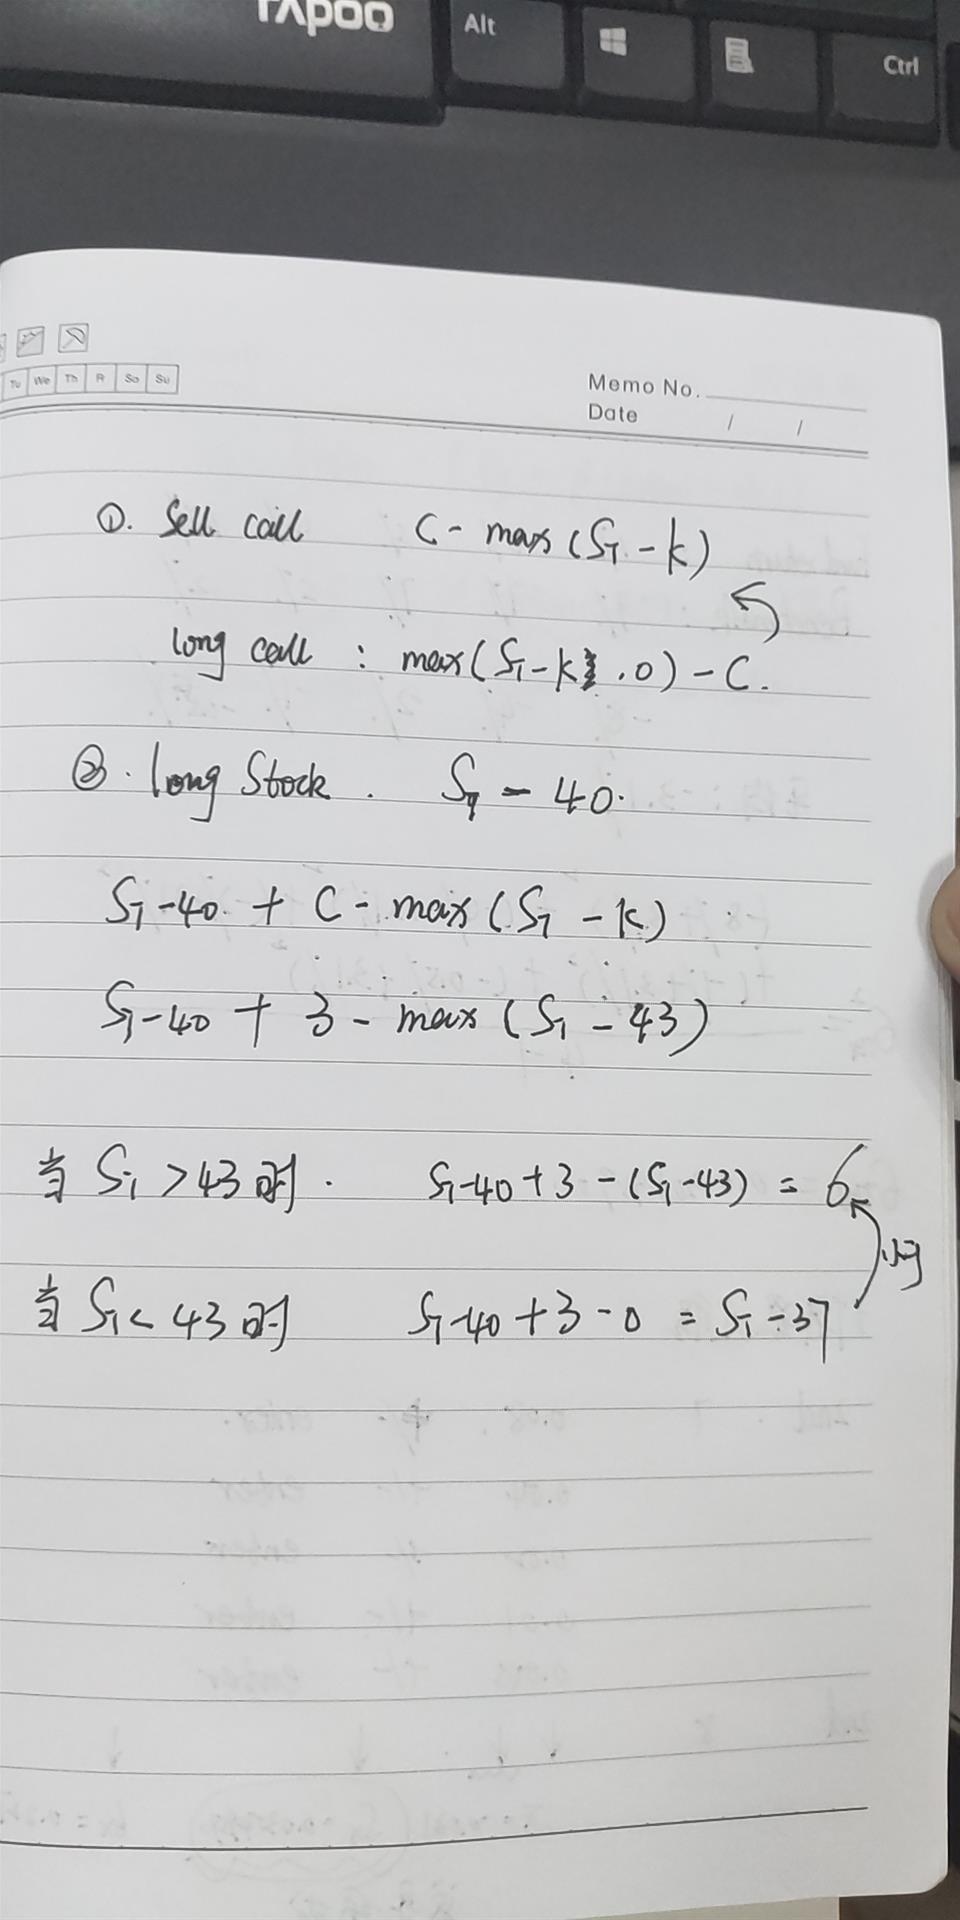 rapoo Alt Ctrl
Tu We Th Fr Sa Su
Memo No.
Date / /
①. Sell call C - max (S_T - k)
long call : max (S_T - k , 0) - C.
②. long Stock . S_T - 40.
S_T - 40. + C - max (S_T - k)
S_T - 40 + 3 - max (S_T - 43)
当 S_T > 43 时 . S_T - 40 + 3 - (S_T - 43) = 6
当 S_T < 43 时 S_T - 40 + 3 - 0 = S_T - 37